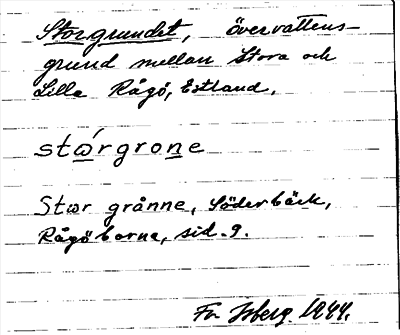 Storgrundet, övervattens-
grund mellan Stora och
Lilla Rågö, Estland.
stɷ́rgrone
Stɷr grånne, Söderbäck,
Rågöborna, sid. 9.
Fr. Isberg 1944.